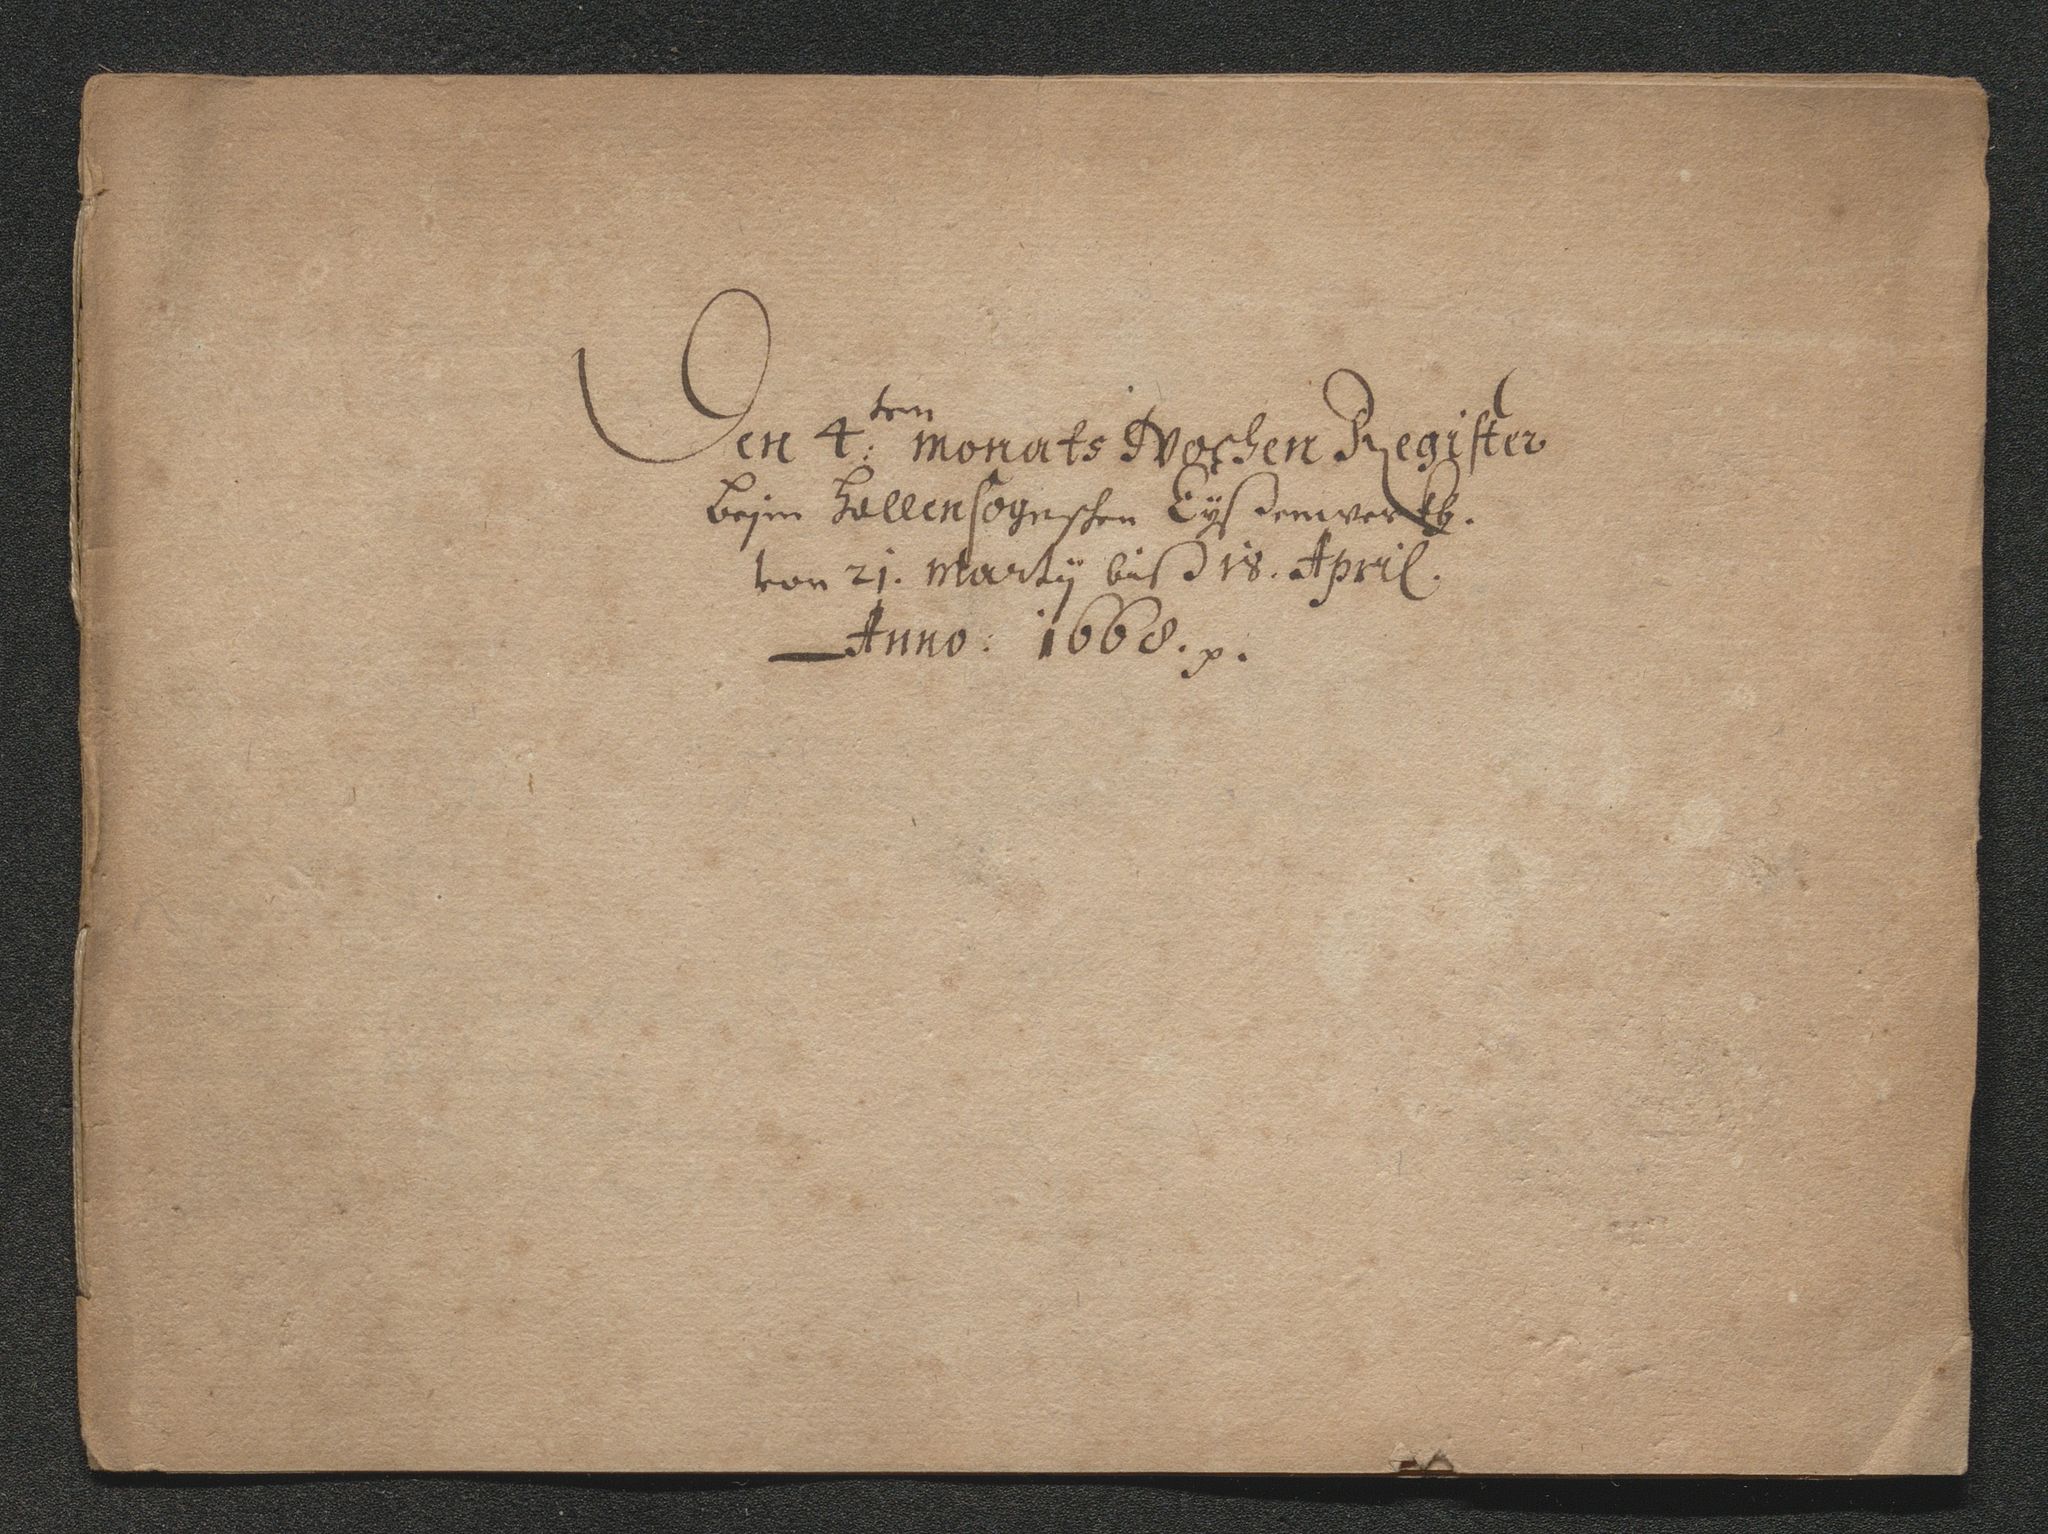 Den 4:ten Monats Wochen Register
beÿm Hallensognschen Eÿßenwerkh.
von 21. Martÿ biß d 18. April.
Anno: 1668. p.